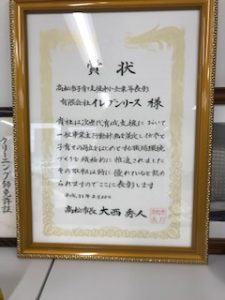 賞状
高松市子育て支援中小企業等表彰
有限会社イレブンリース 様
貴社は次世代育成支援において
一般事業主行動計画を策定し仕事と
子育ての両立をはじめとする職場環境
づくりを積極的に推進されました
その取組は特に優れていると認め
られますのでここに表彰します
高松市長 大西秀人
クリーニング師免許証